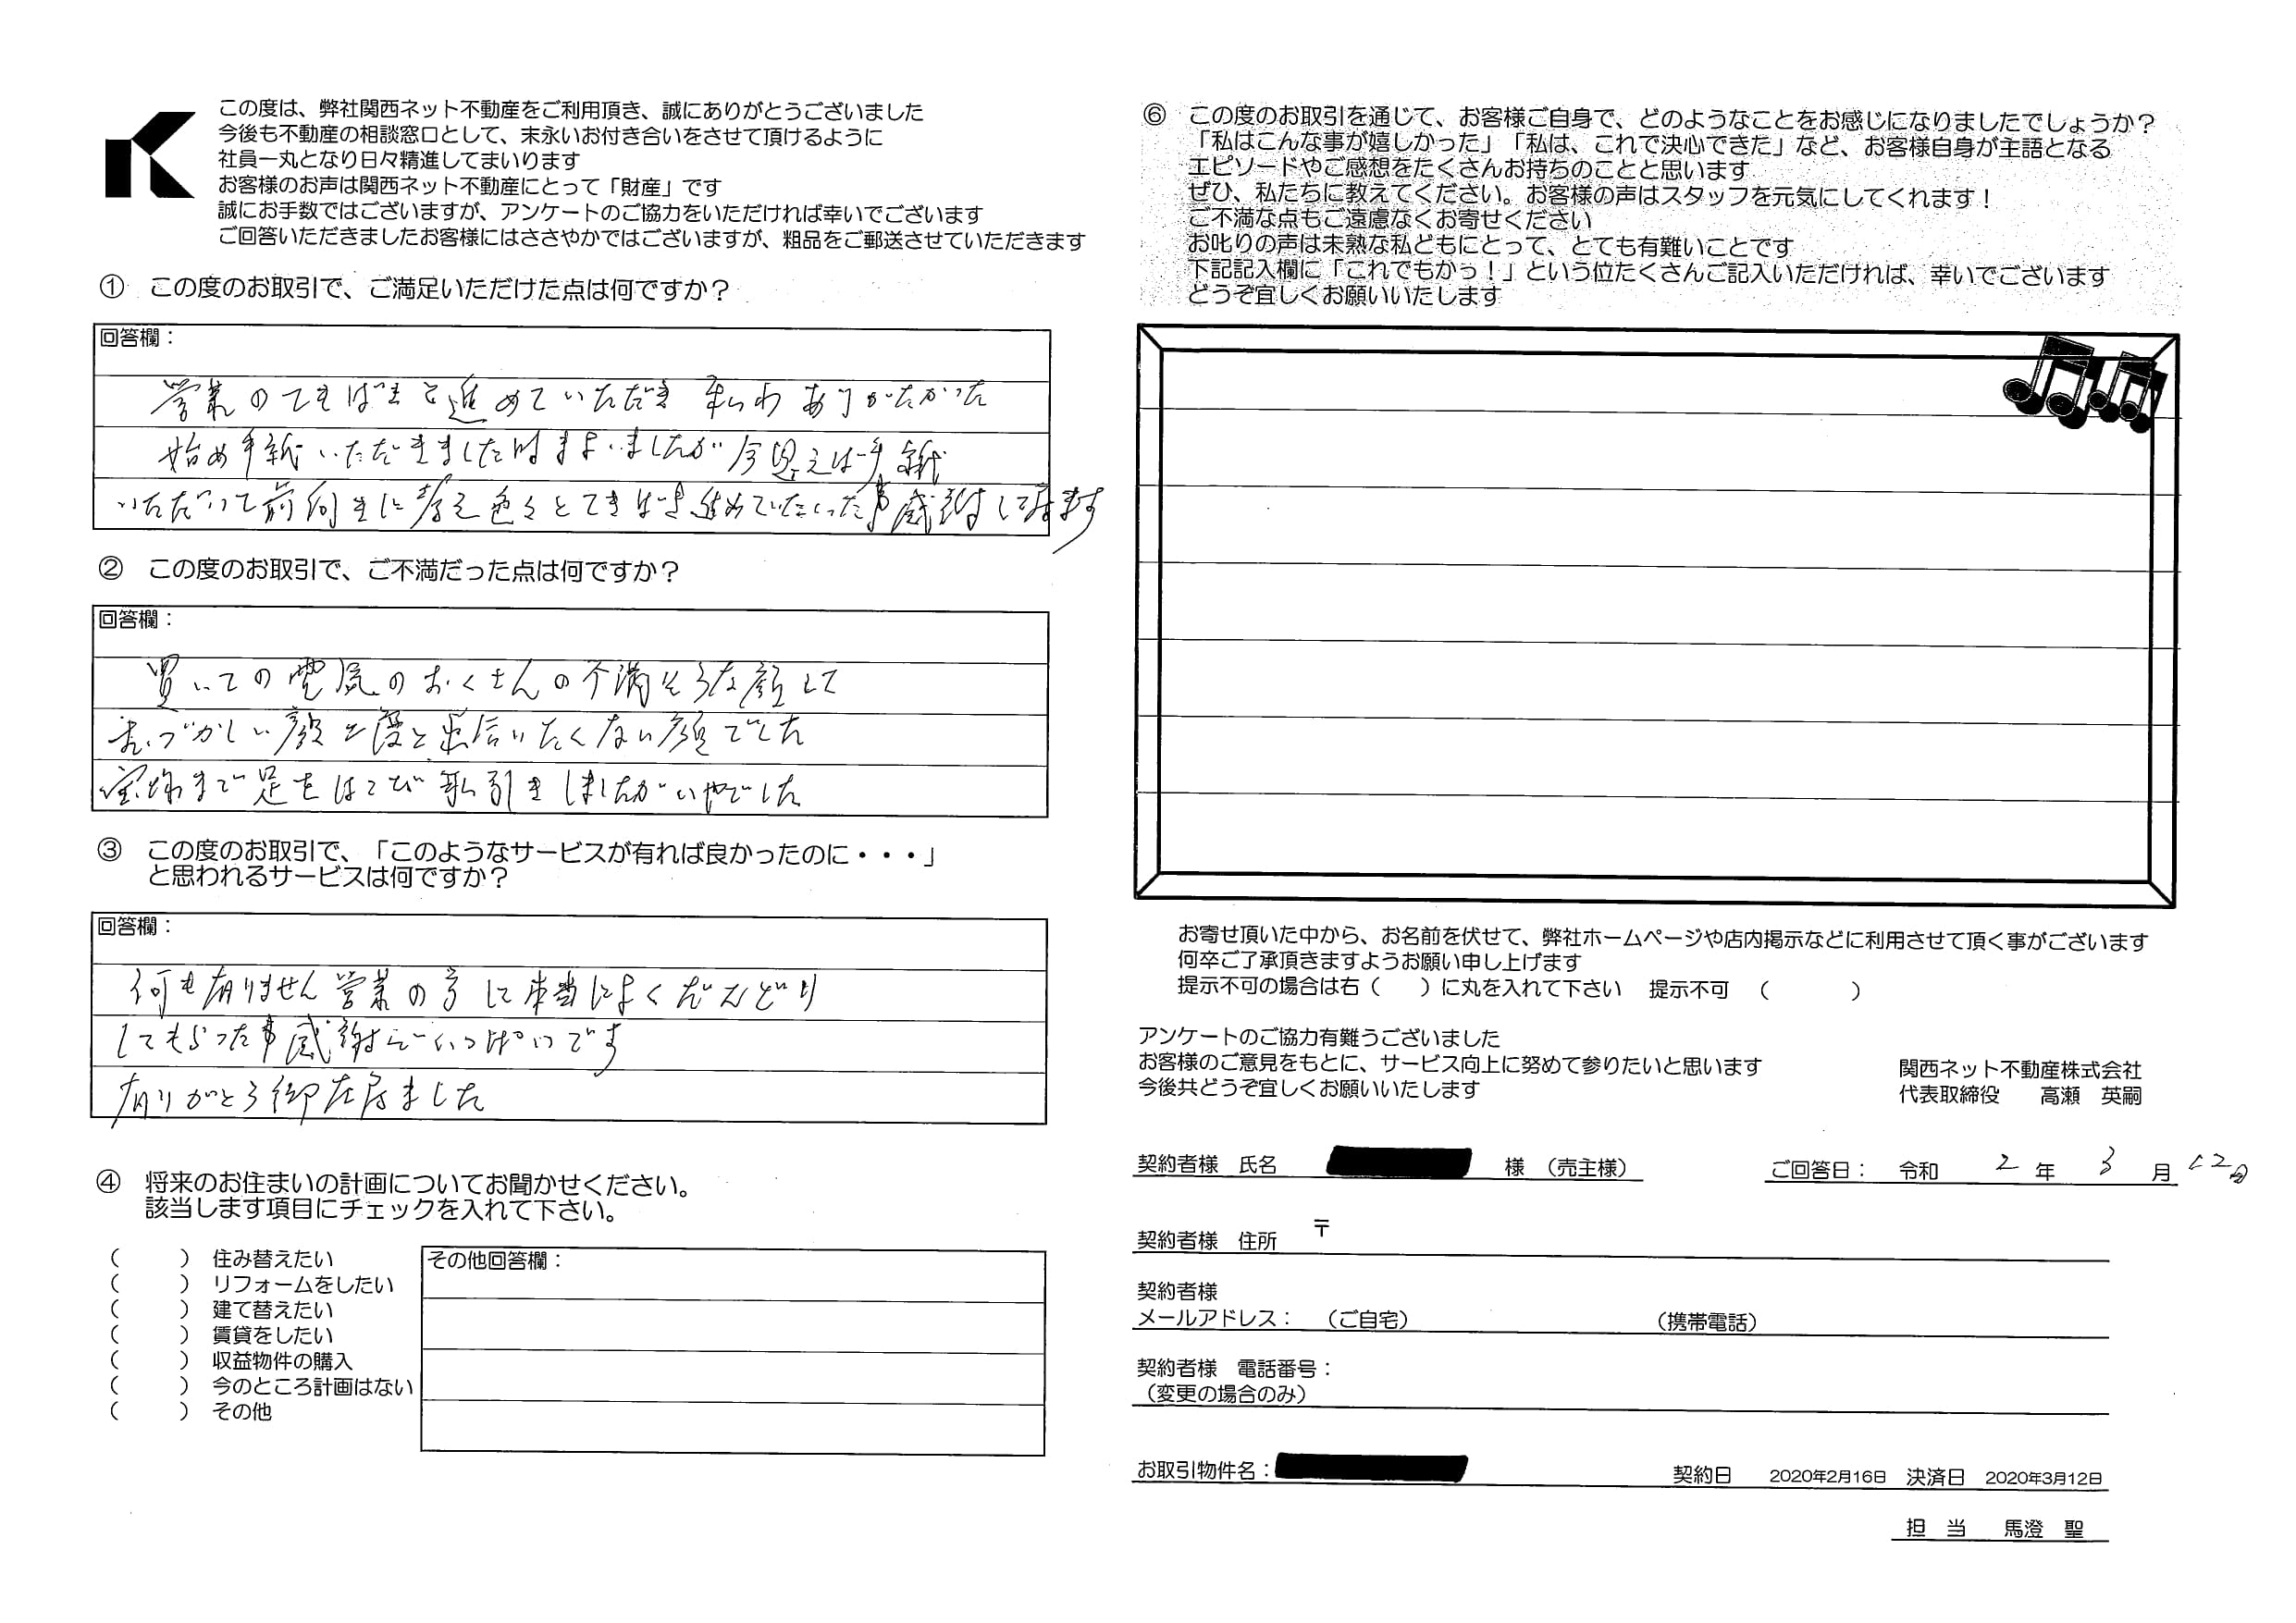 この度は、弊社関西ネット不動産をご利用頂き、誠にありがとうございました
今後も不動産の相談窓口として、末永いお付き合いをさせて頂けるように
社員一丸となり日々精進してまいります
お客様のお声は関西ネット不動産にとって「財産」です
誠にお手数ではございますが、アンケートのご協力をいただければ幸いでございます
ご回答いただきましたお客様にはささやかではございますが、粗品をご郵送させていただきます
① この度のお取引で、ご満足いただけた点は何ですか？
回答欄：
営業のてきぱきと進めていただき 私わ ありがたかった
始め手紙いただきました時まよいましたが今思えば手紙
いただいて前向きに考え色々とてきぱき進めていたゞいた事感謝してます
② この度のお取引で、ご不満だった点は何ですか？
回答欄：
買いての電気のおくさんの不満そうな顔して
むづかしい顔二度と出合いたくない顔でした
まで足をはこび取引きしましたがいやでした
③ この度のお取引で、「このようなサービスが有れば良かったのに・・・」
と思われるサービスは何ですか？
回答欄：
何も有りません営業の方して本当によくだんどり
してもらった事感謝でいっぱいです
有りがとう御在居ました
④ 将来のお住まいの計画についてお聞かせください。
該当します項目にチェックを入れて下さい。
（　　　） 住み替えたい
（　　　） リフォームをしたい
（　　　） 建て替えたい
（　　　） 賃貸をしたい
（　　　） 収益物件の購入
（　　　） 今のところ計画はない
（　　　） その他
その他回答欄：
⑥ この度のお取引を通じて、お客様ご自身で、どのようなことをお感じになりましたでしょうか？
「私はこんな事が嬉しかった」「私は、これで決心できた」など、お客様自身が主語となる
エピソードやご感想をたくさんお持ちのことと思います
ぜひ、私たちに教えてください。お客様の声はスタッフを元気にしてくれます！
ご不満な点もご遠慮なくお寄せください
お叱りの声は未熟な私どもにとって、とても有難いことです
下記記入欄に「これでもかっ！」という位たくさんご記入いただければ、幸いでございます
どうぞ宜しくお願いいたします
お寄せ頂いた中から、お名前を伏せて、弊社ホームページや店内掲示などに利用させて頂く事がございます
何卒ご了承頂きますようお願い申し上げます
提示不可の場合は右（　　）に丸を入れて下さい　提示不可　（　　　　）
アンケートのご協力有難うございました
お客様のご意見をもとに、サービス向上に努めて参りたいと思います
今後共どうぞ宜しくお願いいたします
関西ネット不動産株式会社
代表取締役　高瀬　英嗣
契約者様　氏名　　　　様　（売主様）　ご回答日：　令和　2　年　3　月 12日
契約者様　住所　〒
契約者様
メールアドレス：　（ご自宅）　　　（携帯電話）
契約者様　電話番号：
（変更の場合のみ）
お取引物件名：　　　契約日　2020年2月16日　決済日　2020年3月12日
担　当　馬澄　聖